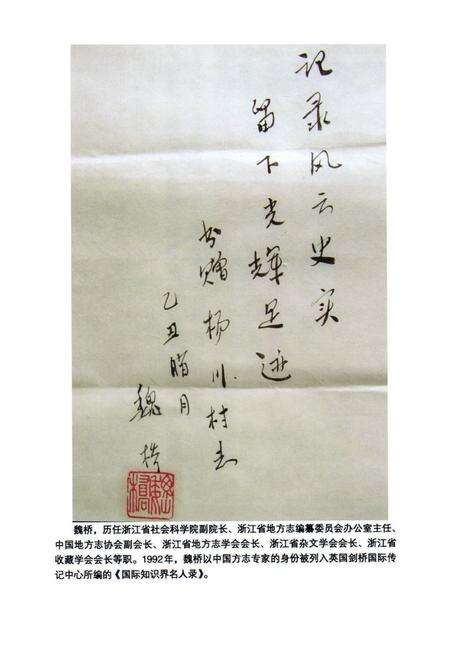 记录风云史实
留下光辉足迹
书赠杨川村志
乙丑腊月
魏桥
魏桥，历任浙江省社会科学院副院长、浙江省地方志编纂委员会办公室主任、
中国地方志协会副会长、浙江省地方志学会会长、浙江省杂文学会会长、浙江省
收藏学会会长等职。1992年，魏桥以中国方志专家的身份被列入英国剑桥国际传
记中心所编的《国际知识界名人录》。